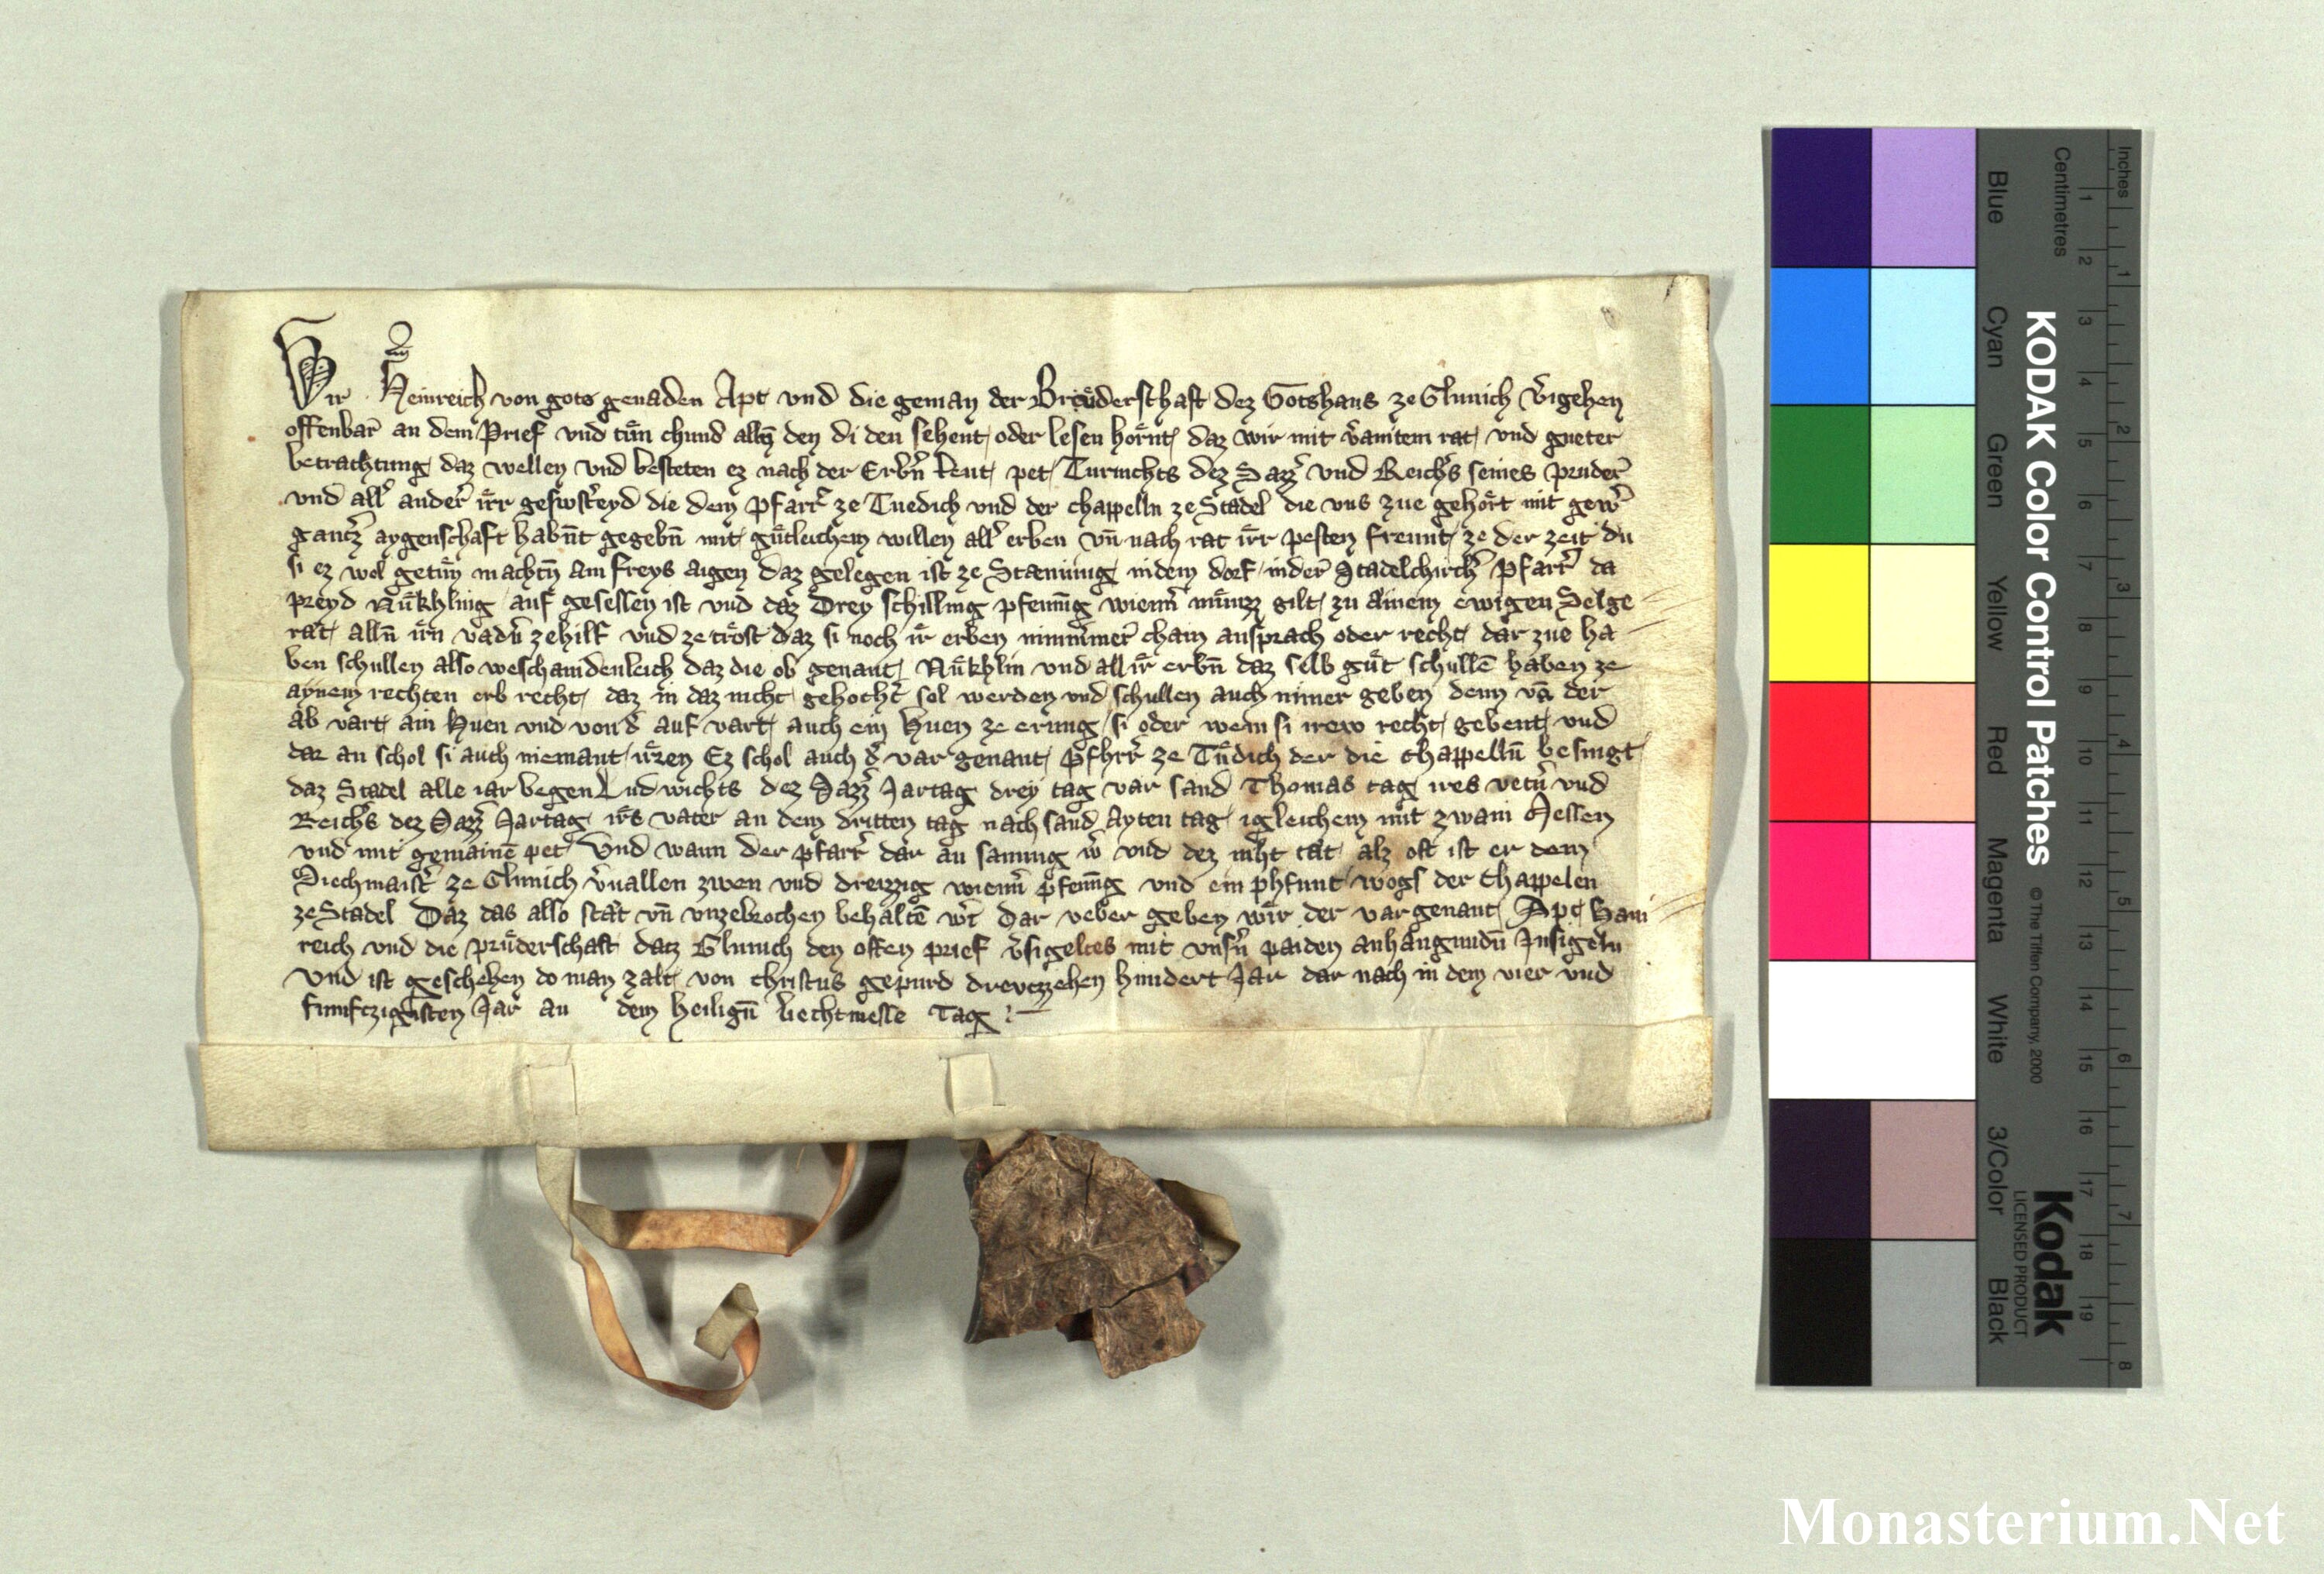 Wir Heinreich von gots genaden Apt und die geman der Brüderschaft dez Gotshaus ze Glunich v̄igehen
offenbar an dem Prief und tůn chund alln den di den sehent oder lesen hornt daz wir mit v̄amtem rat und gueter
betrachtung daz wellen und besteten ez nach der Erb̄n leut pet Turnichts dez Sazz̄ und Reich̄s seines pruder
und all̄ ander ir̊r geswst̄eyd die dem pfarr̄ ze Tuedich und der chappelln ze Stadel die uns zue gehort mit gew̄
gantz̄ aygenschaft habn̄t gegebn̄ mit gůtleichem willen all̄ erben un̄ nach rat ir̊r pesten freunt ze der zeit du
si ez wol getůn machtn̄ am freys aigen daz gelegen ist ze Stænning in dem dorf in der Stadelchirch̄ pfarr̄ da
preyd Nůkhling auf gesessen ist und daz Drey schilling pfenn̄ig wienn̄ můnzz gilt zu ainem ewigen Selge
rat alln̄ ir̊n vad̄n ze hilf und ze trost daz si noch ir̊ erben nimmer̄ chain ansprach oder recht dar zue ha
ben schullen also weschaidenleich daz die ob genant Nůkhlin und all ir̊ erbn̄ daz selb gůt schullē haben ze
aynem rechten erb recht daz in daz nicht gehocht̄ sol werden und schullen auch nimer geben denn vā der
ab vart ain Huen und von d̄ auf vart auch ein Huen ze erung si oder wem si irew recht gebent und
dar an schol si auch niemant irren Ez schol auch d̄ var genant pfhrr̄ ze Tůdich der die chappelln̄ besingt
daz Stadel alle iar begen Ludwichts dez Sazz̄ Jartag drey tag var sand Thomas tag ires vet̄n und
Reich̄s dez Sazz̄ Jartag ir̊s vater an dem dritten tag nach sand Ayten tag igleichem mit zwain Messen
und mit gemainē pet Und wann der pfarr̄ dar an saming w̄ und dez niht tat alz oft ist er dem
Siechmaist̄ ze Glunich v̄uallen zwen und dreizzig wienn̄ pfenn̄ig und ein phfunt wogs der chappelen
ze Stadel Daz das also stat un̄ unzebrochen behaltē w̄t Dar ueber geben wir der var genant Apt Hain
reich und die průderschaft datz Glunich den offen prief v̄sigeltes mit uns̄n paiden anhangundn̄ Insigeln
Und ist geschehen do man zalt von christus gepurd dreuczzehen hundert Jar dar nach in dem vier und
funfczigisten Jar an dem heilign̄ liechtmesse Tag
KODAK Color Control Patches
© The Tiffen Company, 2000
Kodak
LICENSED PRODUCT
Inches
Centimetres
1 2 3 4 5 6 7 8
1 2 3 4 5 6 7 8 9 10 11 12 13 14 15 16 17 18 19
Blue
Cyan
Green
Yellow
Red
Magenta
White
3/Color
Black
Monasterium.Net